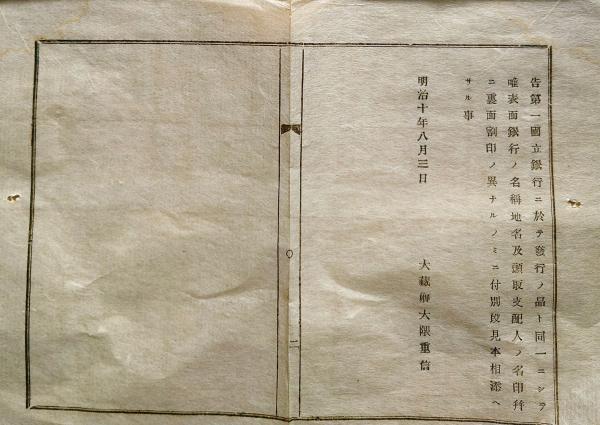 告第一國立銀行ニ於テ發行ノ品ト同一ニシテ
唯表面銀行ノ名稱地名及頭取支配人ノ名印幷
ニ裏面割印ノ異ナルノミニ付別段見本相添ヘ
サル事
明治十年八月三日
大藏卿大隈重信
二